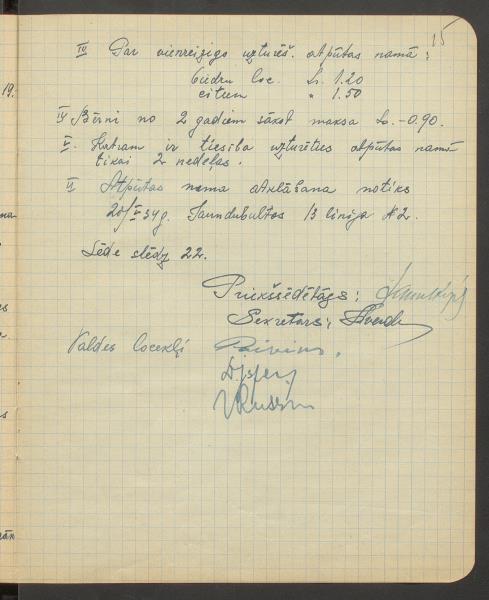 15
III Par vienreizīgo uzturēš. atpūtas namā:
biedru loc. Ls. 1.20
citiem " 1.50
IV Bērni no 2 gadiem sākot maksa Ls. -0.90.
V. Katram ir tiesība uzturēties atpūtas namā
tikai 2 nedēļas.
VI Atpūtas nama atklāšana notiks
20/V 34 g. Jaundubultos 13 līnija № 2.
Sēde slēdz 22.
Priekšsēdētājs:
Sekretārs:
Valdes locekļi
19.